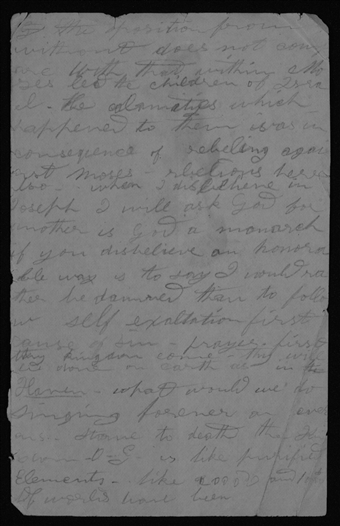 the position from
without does not com
pare with that within Mo
ses led the children of Isra
el - the calamatyes which
happened to them was in
consequence of rebeling agai
nst Moses - rebelions here
too - when I disbelieve in
Joseph I will ask God for
another is God a monarch
if you disbelieve an honora
ble way is to say I would ra
ther be damned than to follo
w self exaltation first
cause of sin - prayer - first
thy kingdom come - thy will
be done on earth as in the
Heaven - what would we do
singing forever an ever
starve to death the
is like purified
Elements - like and
of worlds have been